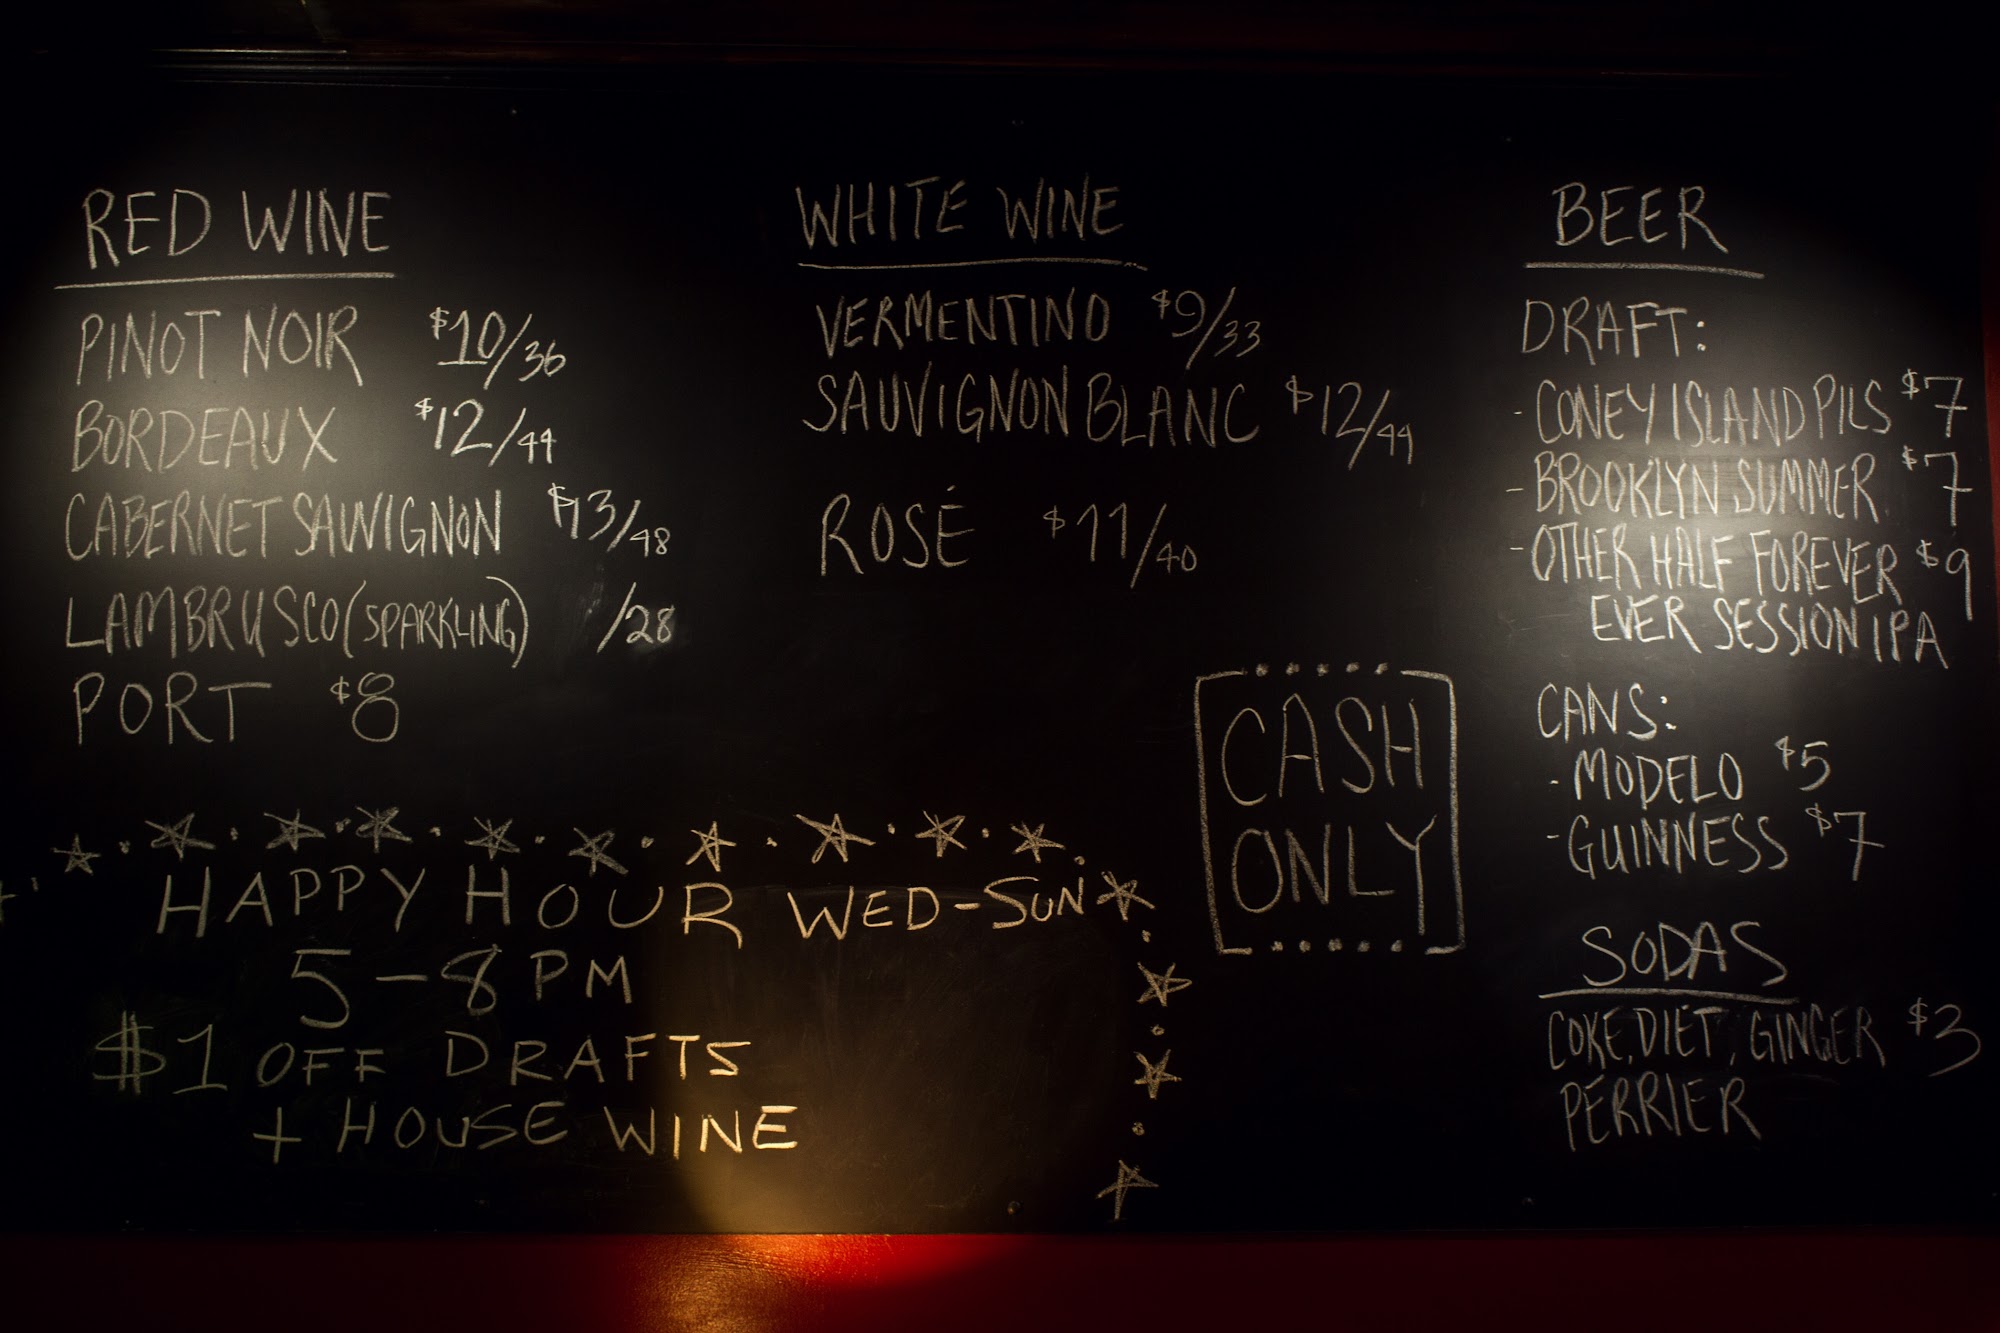 RED WINE
PINOT NOIR $10/36
BORDEAUX $12/44
CABERNET SAUVIGNON $13/48
LAMBRUSCO (SPARKLING) /28
PORT $8
WHITE WINE
VERMENTINO $9/33
SAUVIGNON BLANC $12/44
ROSÉ $11/40
BEER
DRAFT:
- CONEY ISLAND PILS $7
- BROOKLYN SUMMER $7
- OTHER HALF FOREVER $9
EVER SESSION IPA
CANS:
- MODELO $5
- GUINNESS $7
SODAS
COKE, DIET, GINGER $3
PERRIER
CASH
ONLY
HAPPY HOUR WED-SUN
5-8 PM
$1 OFF DRAFTS
+ HOUSE WINE